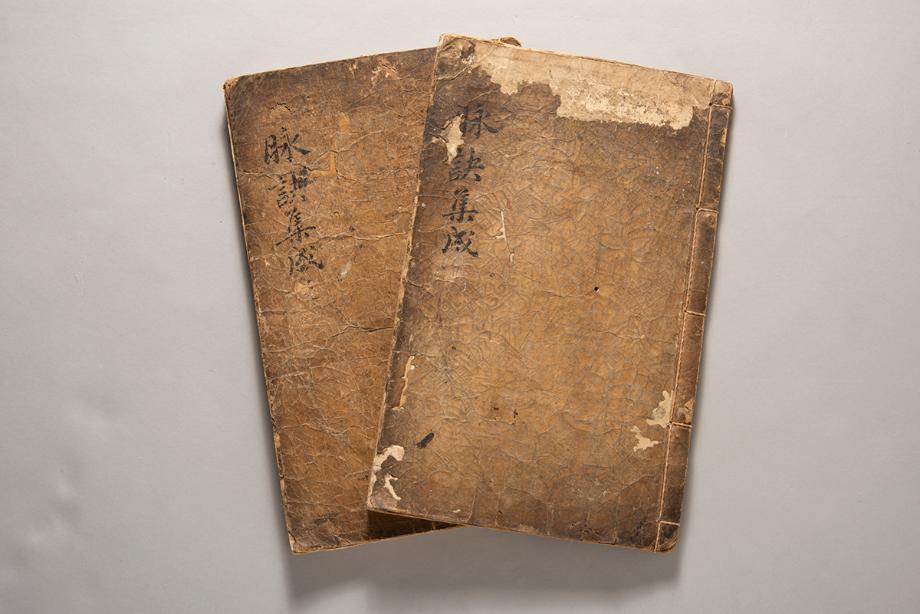 脉訣集成
脉訣集成